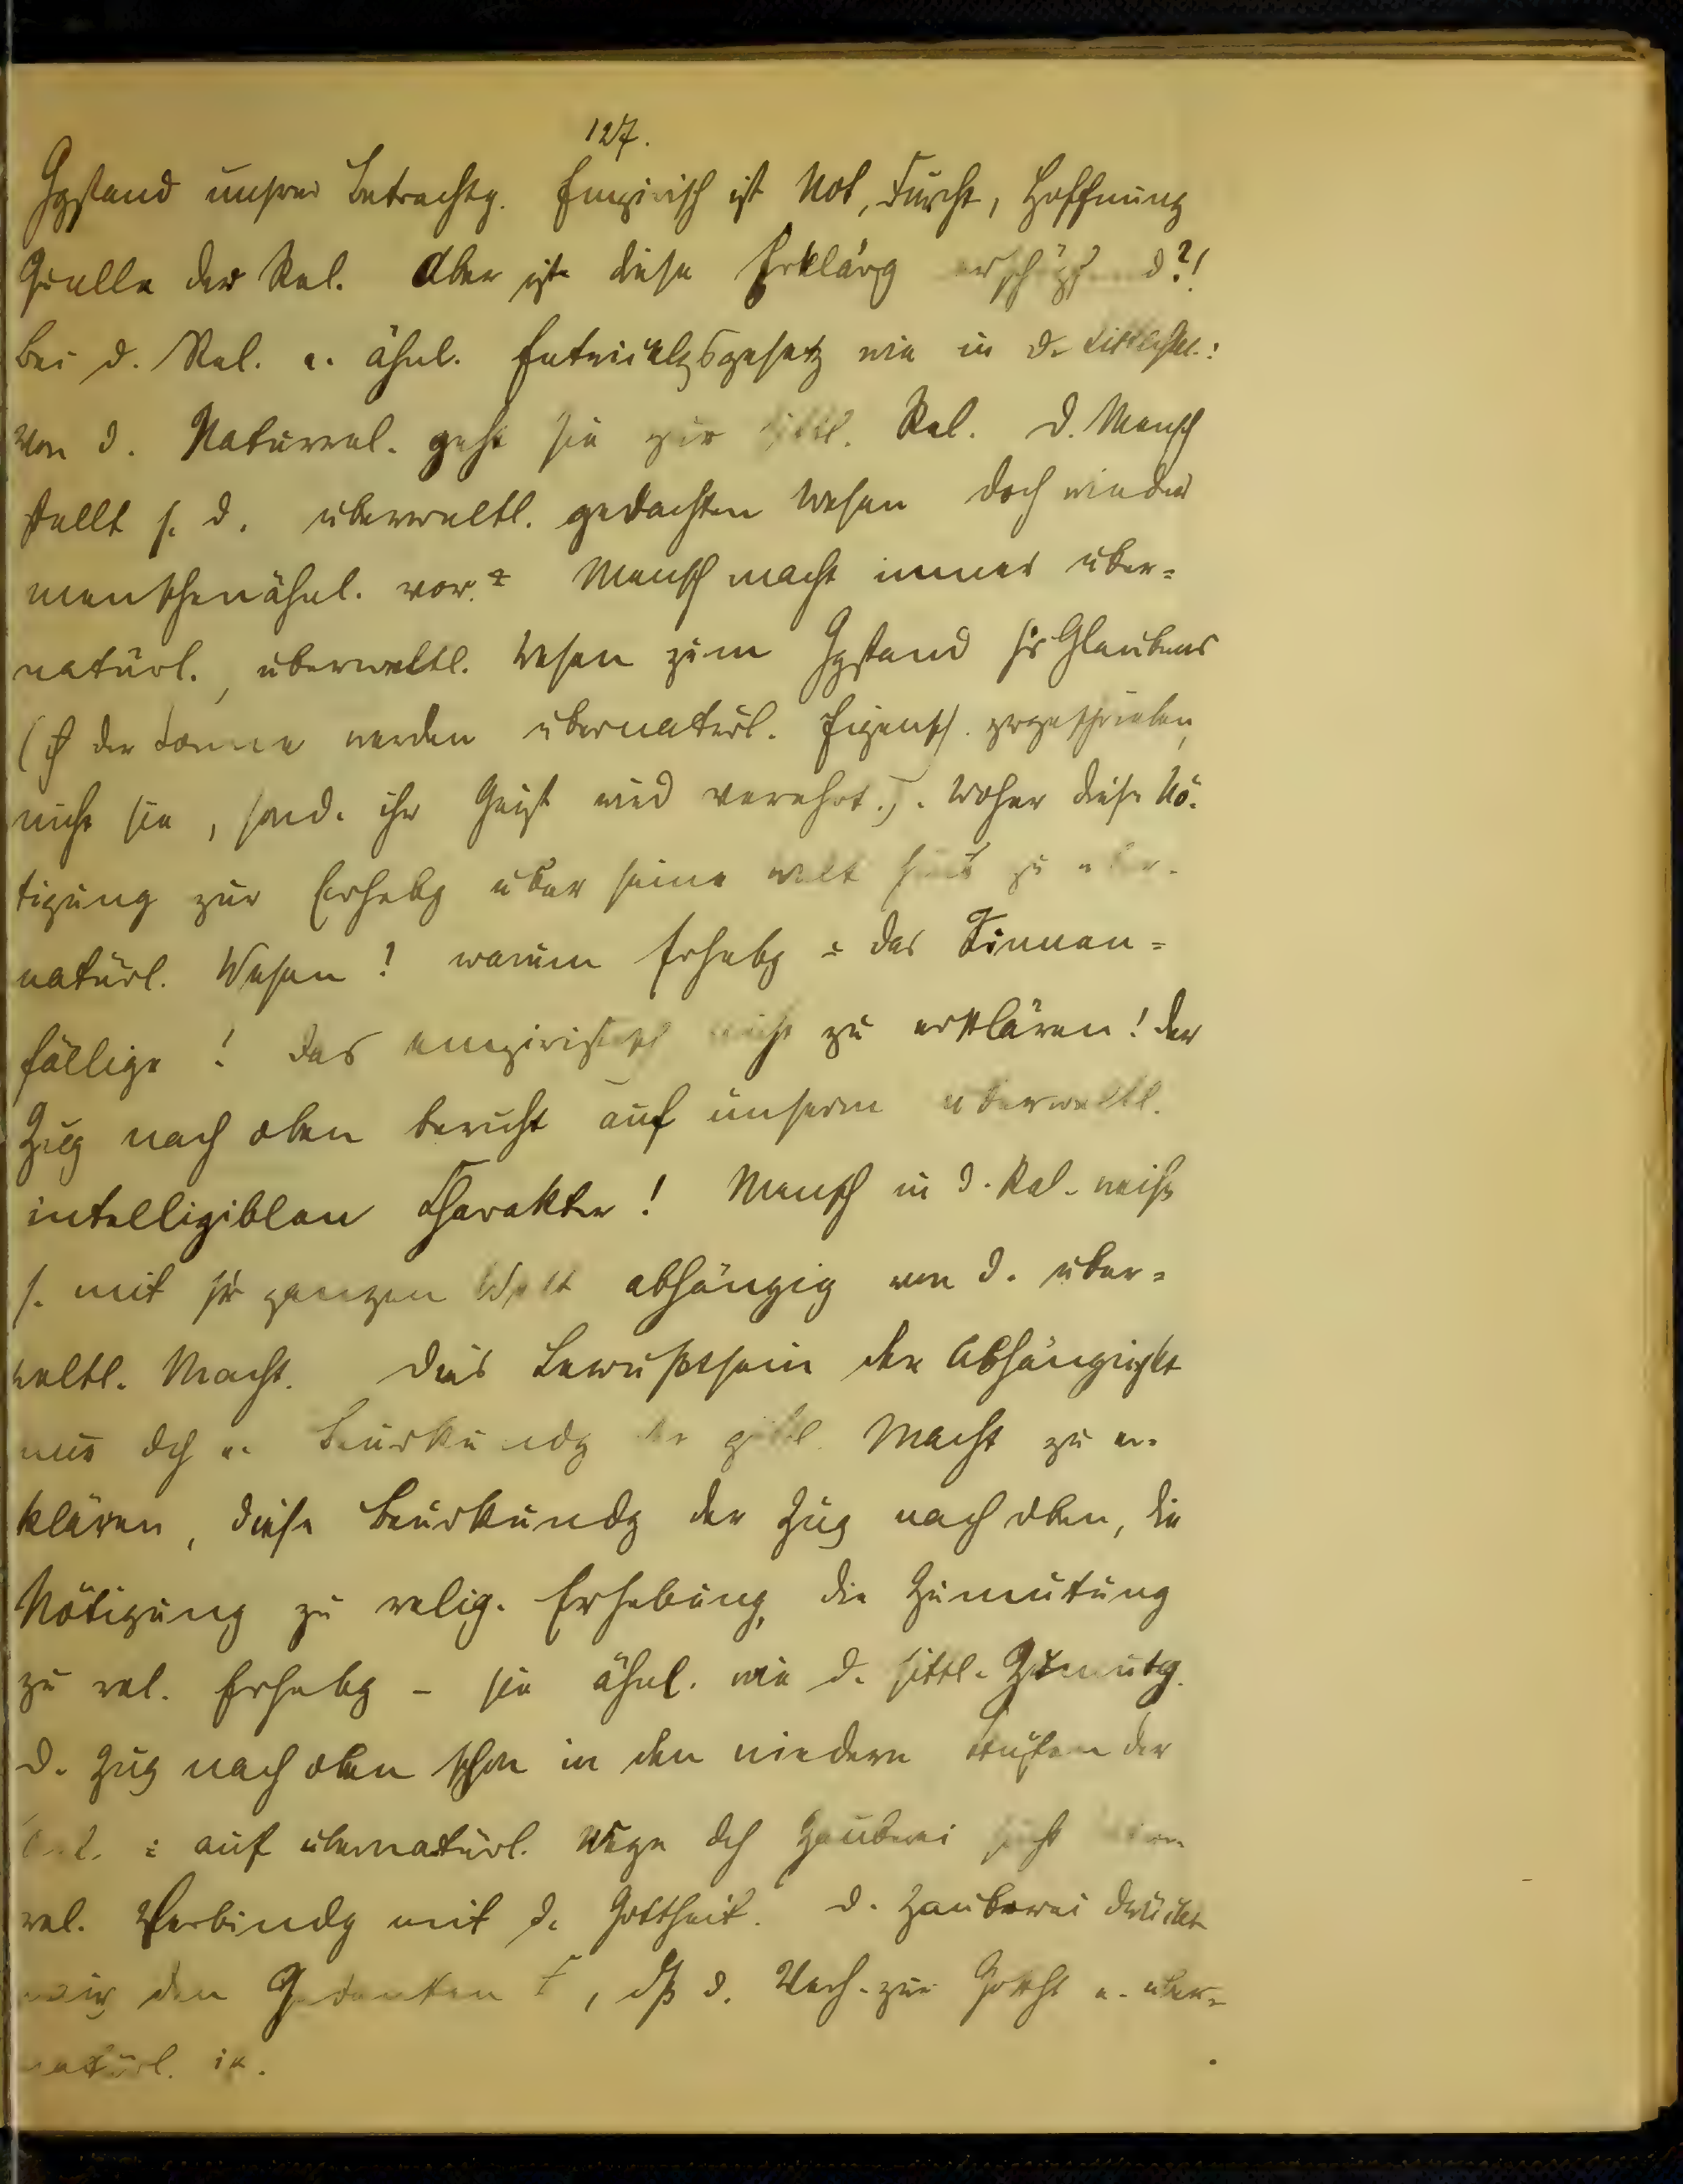 127.
Ggstand unsrer Betrachtg. Empirisch ist Not, Furcht, Hoffnung
Quelle der Rel. Aber ist diese Erklärg erschöpfend?!
Bei d. Rel. e. ähnl. Entwicklgsgesetz wie in d. Sittlichk.:
Von d. Naturrel. geht sie zur sittl. Rel. D. Mensch
stellt s. d. überweltl. gedachten Wesen doch wieder
menschenähnl. vor. Mensch macht immer über=
natürl., überweltl. Wesen zum Ggstand sr Glaubens
( der Sonne werden übernatürl. Eigensch. zugeschrieben,
nicht sie, sond. ihr Geist wird verehrt.). Woher diese Nö-
tigung zur Erhebg über seine Welt zu über-
natürl. Wesen? warum Erhebg ü das Sinnen=
fällige! Das empiristisch nicht zu erklären! Der
Zug nach oben beruht auf unserm überweltl.
intelligiblen Charakter! Mensch in d. Rel. weiß
s. mit sr ganzen Welt abhängig von d. über=
weltl. Macht. Dies Bewußtsein der Abhängigkt
nur dch e. Beurkundg der göttl. Macht zu er-
klären, diese Beurkundg der Zug nach oben, die
Nötigung zu relig. Erhebung, die Zumutung
zu rel. Erhebg - sie ähnl. wie d. sittl. Zumutg.
D. Zug nach oben schon in den niedern Stufen der
: auf übernatürl. Wege dch Zauberei sucht
rel. Verbindg mit d. Gottheit. D. Zauberei drückt
den Gedanken , dß d. Verh. zur Gotth e. über=
natürl. ist.